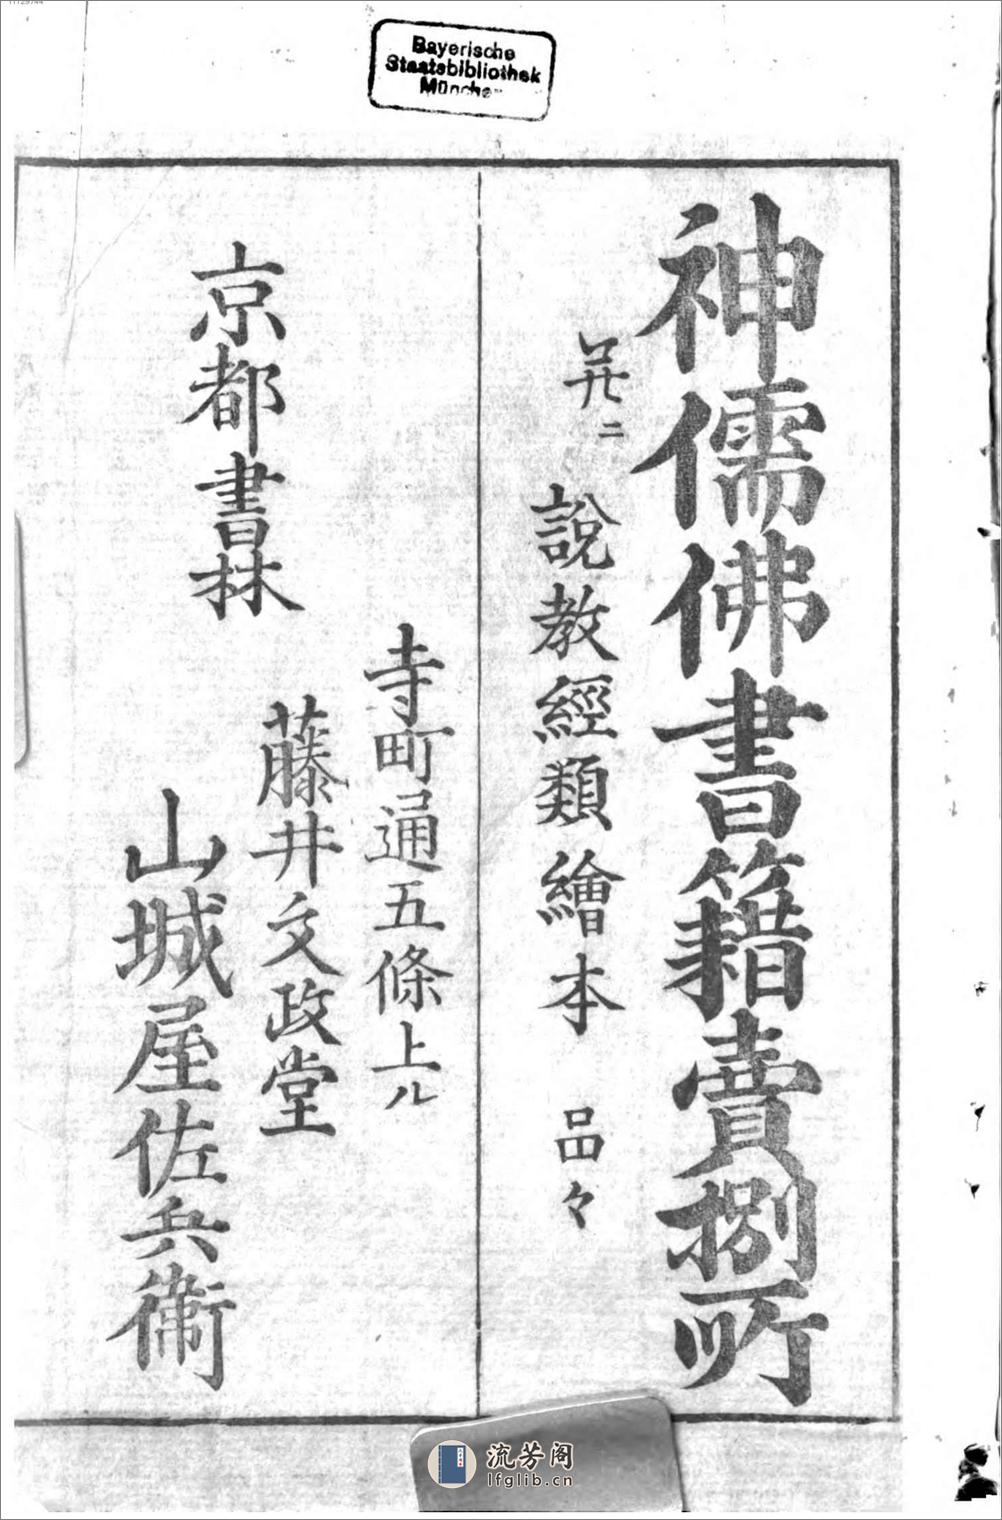 11129744
Bayerische
Staatsbibliothek
München
神儒佛書籍賣捌所
並ニ 說教經類繪本 品々
寺町通五條上ル
京都書林 藤井文政堂
山城屋佐兵衞
流芳阁
lfglib.cn